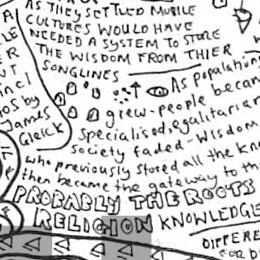 AS THEY SETTLED MOBILE
CULTURES WOULD HAVE
NEEDED A SYSTEM TO STORE
THE WISDOM FROM THIER
SONGLINES
As populations
grew-people becam
specialisod, egalitarian
society faded-wisdom
who previously stored all the kno
then became the gateway to th
PROBABLY THE ROOTS
RELIGION
KNOWLEDGE
DIFFERE
incl
tos by
James
Gleick